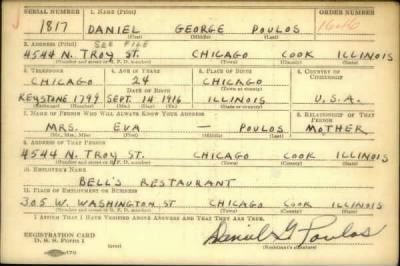 SERIAL NUMBER 1. NAME (Print) ORDER NUMBER
1817 DANIEL GEORGE POULOS 1646
(First) (Middle) (Last)
2. ADDRESS (Print) SEE FILE
4544 N. TROY ST. CHICAGO COOK ILLINOIS
(Number and street or R. F. D. number) (Town) (County) (State)
3. TELEPHONE 4. AGE IN YEARS 5. PLACE OF BIRTH 6. COUNTRY OF CITIZENSHIP
CHICAGO 24 CHICAGO
DATE OF BIRTH (Town or county)
KEYSTONE 1799 SEPT. 14 1916 ILLINOIS U.S.A.
(Exchange) (Number) (Mo.) (Day) (Yr.) (State or country)
7. NAME OF PERSON WHO WILL ALWAYS KNOW YOUR ADDRESS 8. RELATIONSHIP OF THAT PERSON
MRS. EVA — POULOS MOTHER
(Mr., Mrs., Miss) (First) (Middle) (Last)
9. ADDRESS OF THAT PERSON
4544 N. TROY ST. CHICAGO COOK ILLINOIS
(Number and street or R. F. D. number) (Town) (County) (State)
10. EMPLOYER'S NAME
BELL'S RESTAURANT
11. PLACE OF EMPLOYMENT OR BUSINESS
305 W. WASHINGTON ST CHICAGO COOK ILLINOIS
(Number and street or R. F. D. number) (Town) (County) (State)
I AFFIRM THAT I HAVE VERIFIED ABOVE ANSWERS AND THAT THEY ARE TRUE.
REGISTRATION CARD
D. S. S. Form 1 (over) Daniel G Poulos
(Registrant's signature)